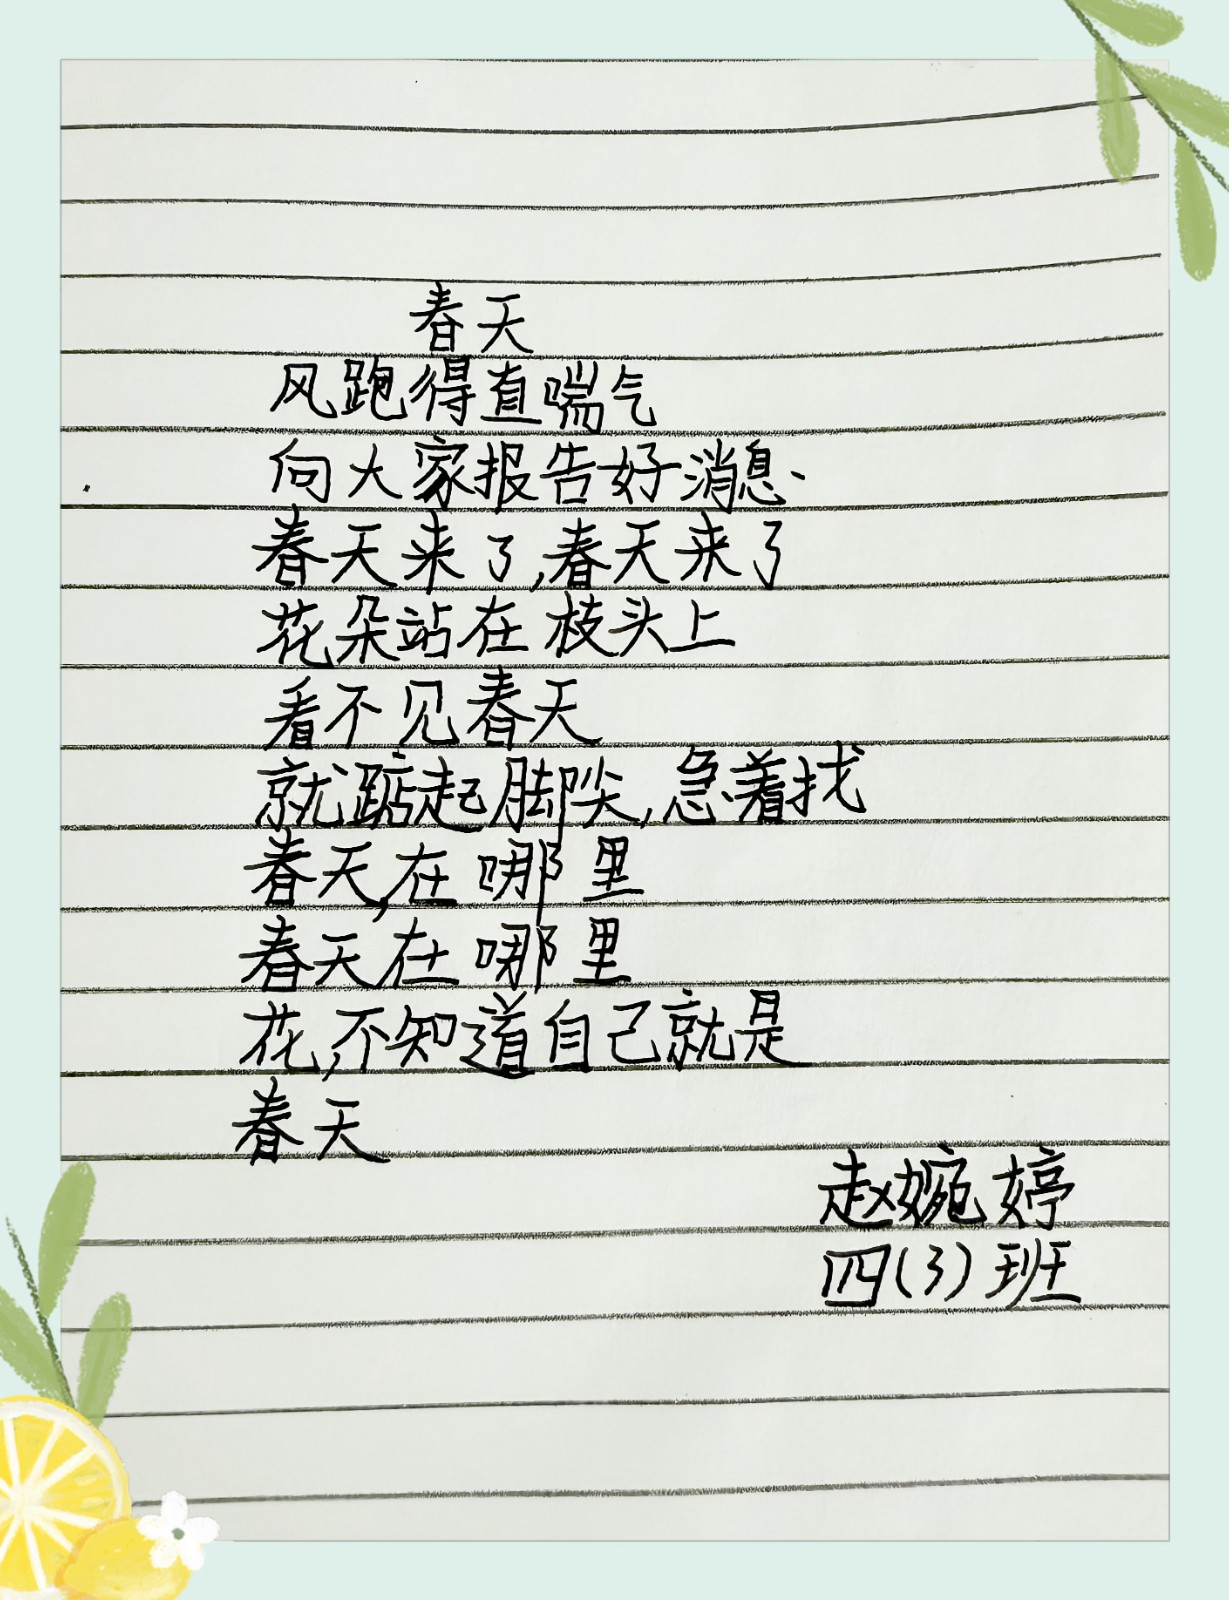 春天
风跑得直喘气
向大家报告好消息
春天来了,春天来了
花朵站在枝头上
看不见春天
就踮起脚尖,急着找
春天,在哪里
春天,在哪里
花,不知道自己就是
春天
赵婉婷
四(3)班